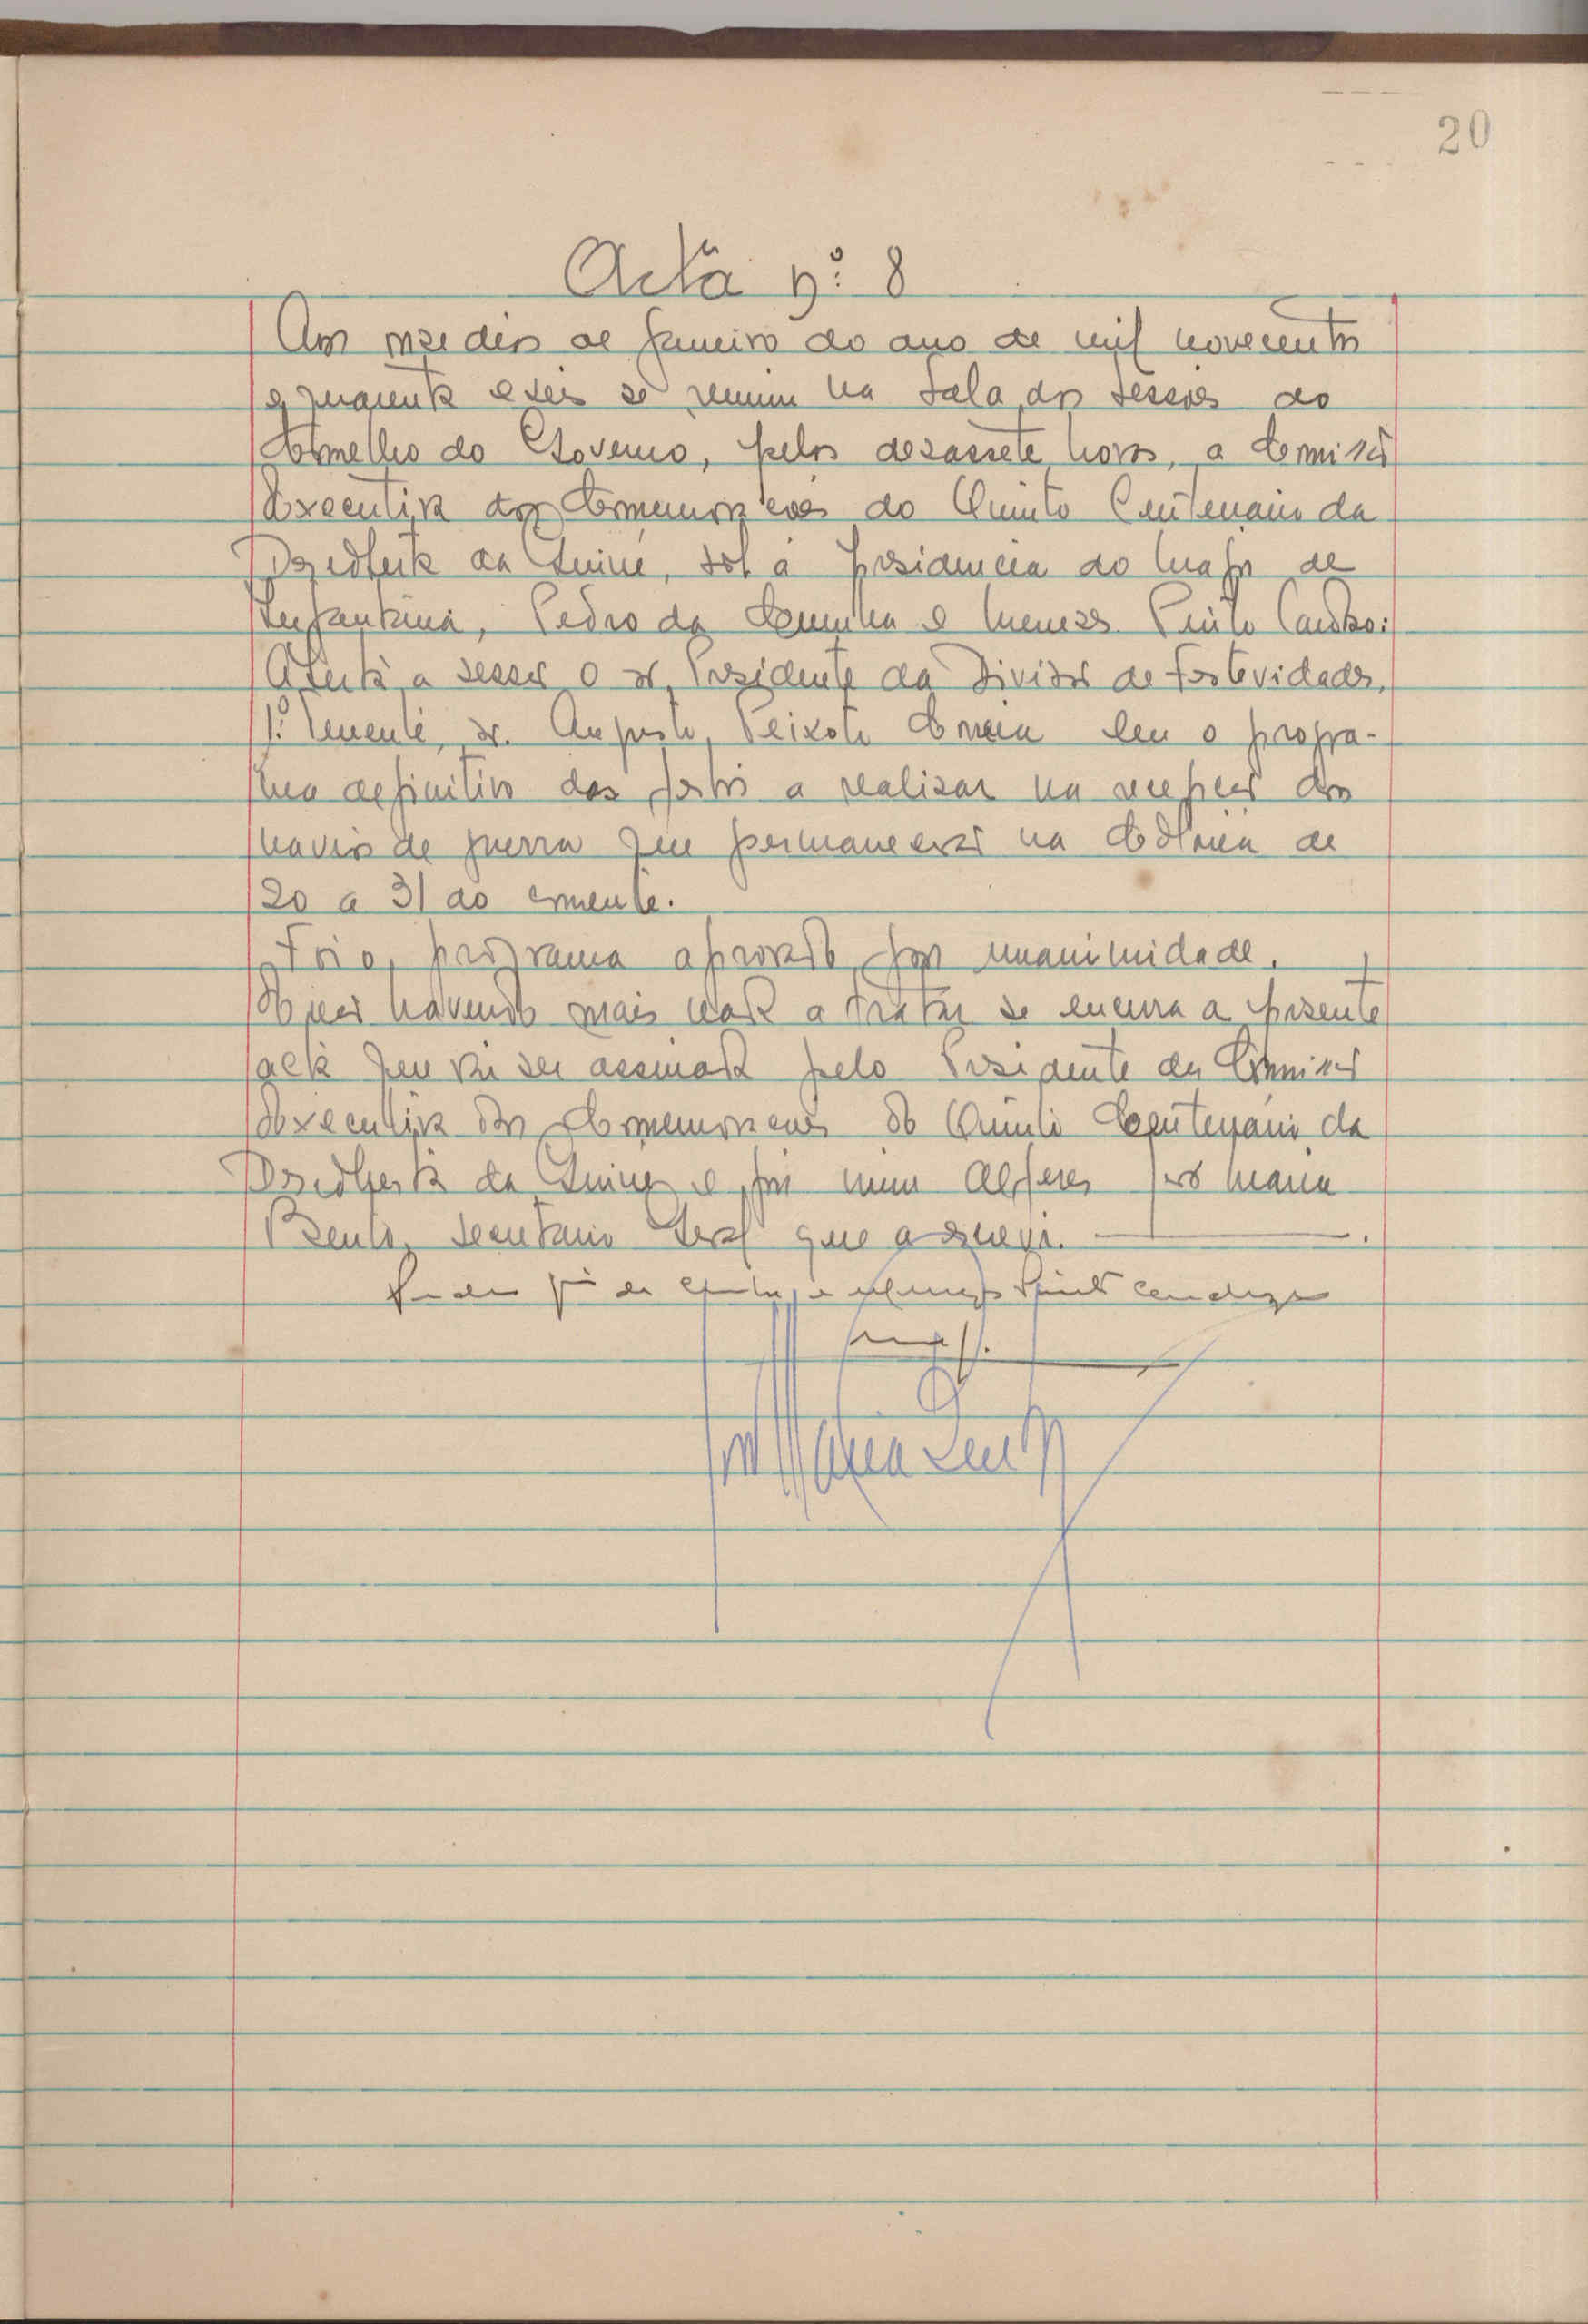 20
Acta n.º 8
Aos onze dias de Janeiro do ano de mil novecentos
e quarenta e seis se reuniu na Sala das Sessões do
Conselho do Governo, pelas dezassete horas, a Comissão
Executiva das Comemorações do Quinto Centenário da
Descoberta da Guiné, sob a presidencia do Major de
Infantaria, Pedro da Cunha e Meneses Pinto Cardoso:
Aberta a sessão o sr. Presidente da Divisão de Festividades,
1.º Tenente, sr. Augusto Peixoto Correia leu o progra-
ma definitivo das festas a realizar na recepção dos
navios de guerra que permanecerão na Colónia de
20 a 31 do corrente.
Foi o programa aprovado por unanimidade.
E não havendo mais nada a tratar se encerra a presente
acta que vai ser assinada pelo Presidente da Comissão
Executiva das Comemorações do Quinto Centenário da
Descoberta da Guiné e por mim Alferes José Maria
Bento, secretário Geral que a escrevi.
Pedro da Cunha e Meneses Pinto Cardoso
maj.
José Maria Bento